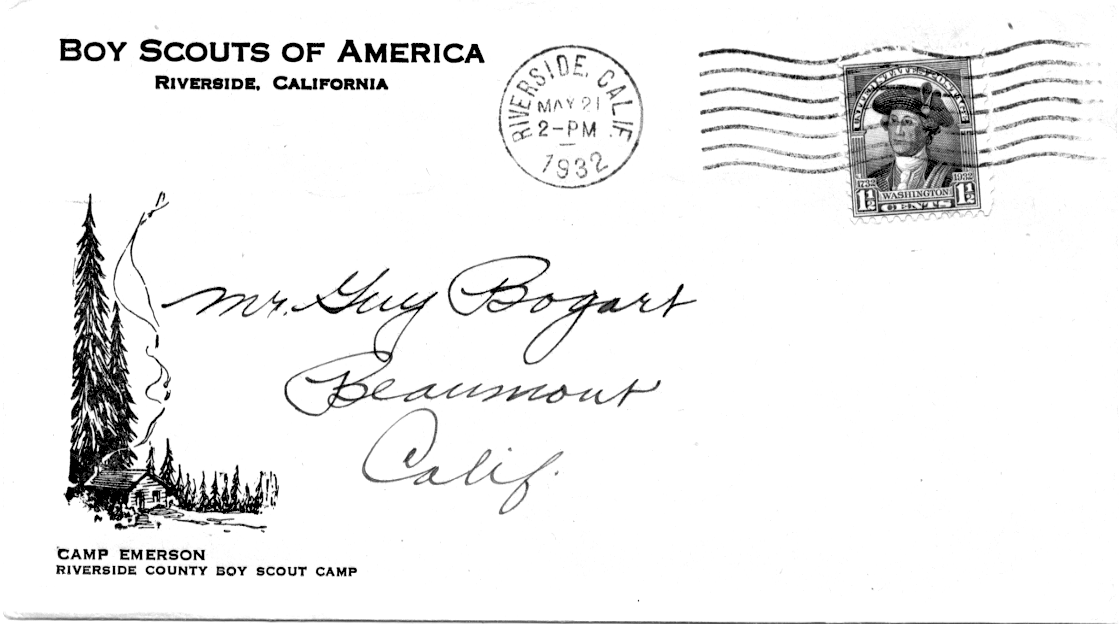 BOY SCOUTS OF AMERICA
RIVERSIDE, CALIFORNIA
RIVERSIDE, CALIF.
MAY 21
2-PM
1932
UNITED STATES POSTAGE
1732 1932
WASHINGTON
1½ 1½
CENTS
Mr. Guy Bogart
Beaumont
Calif.
CAMP EMERSON
RIVERSIDE COUNTY BOY SCOUT CAMP